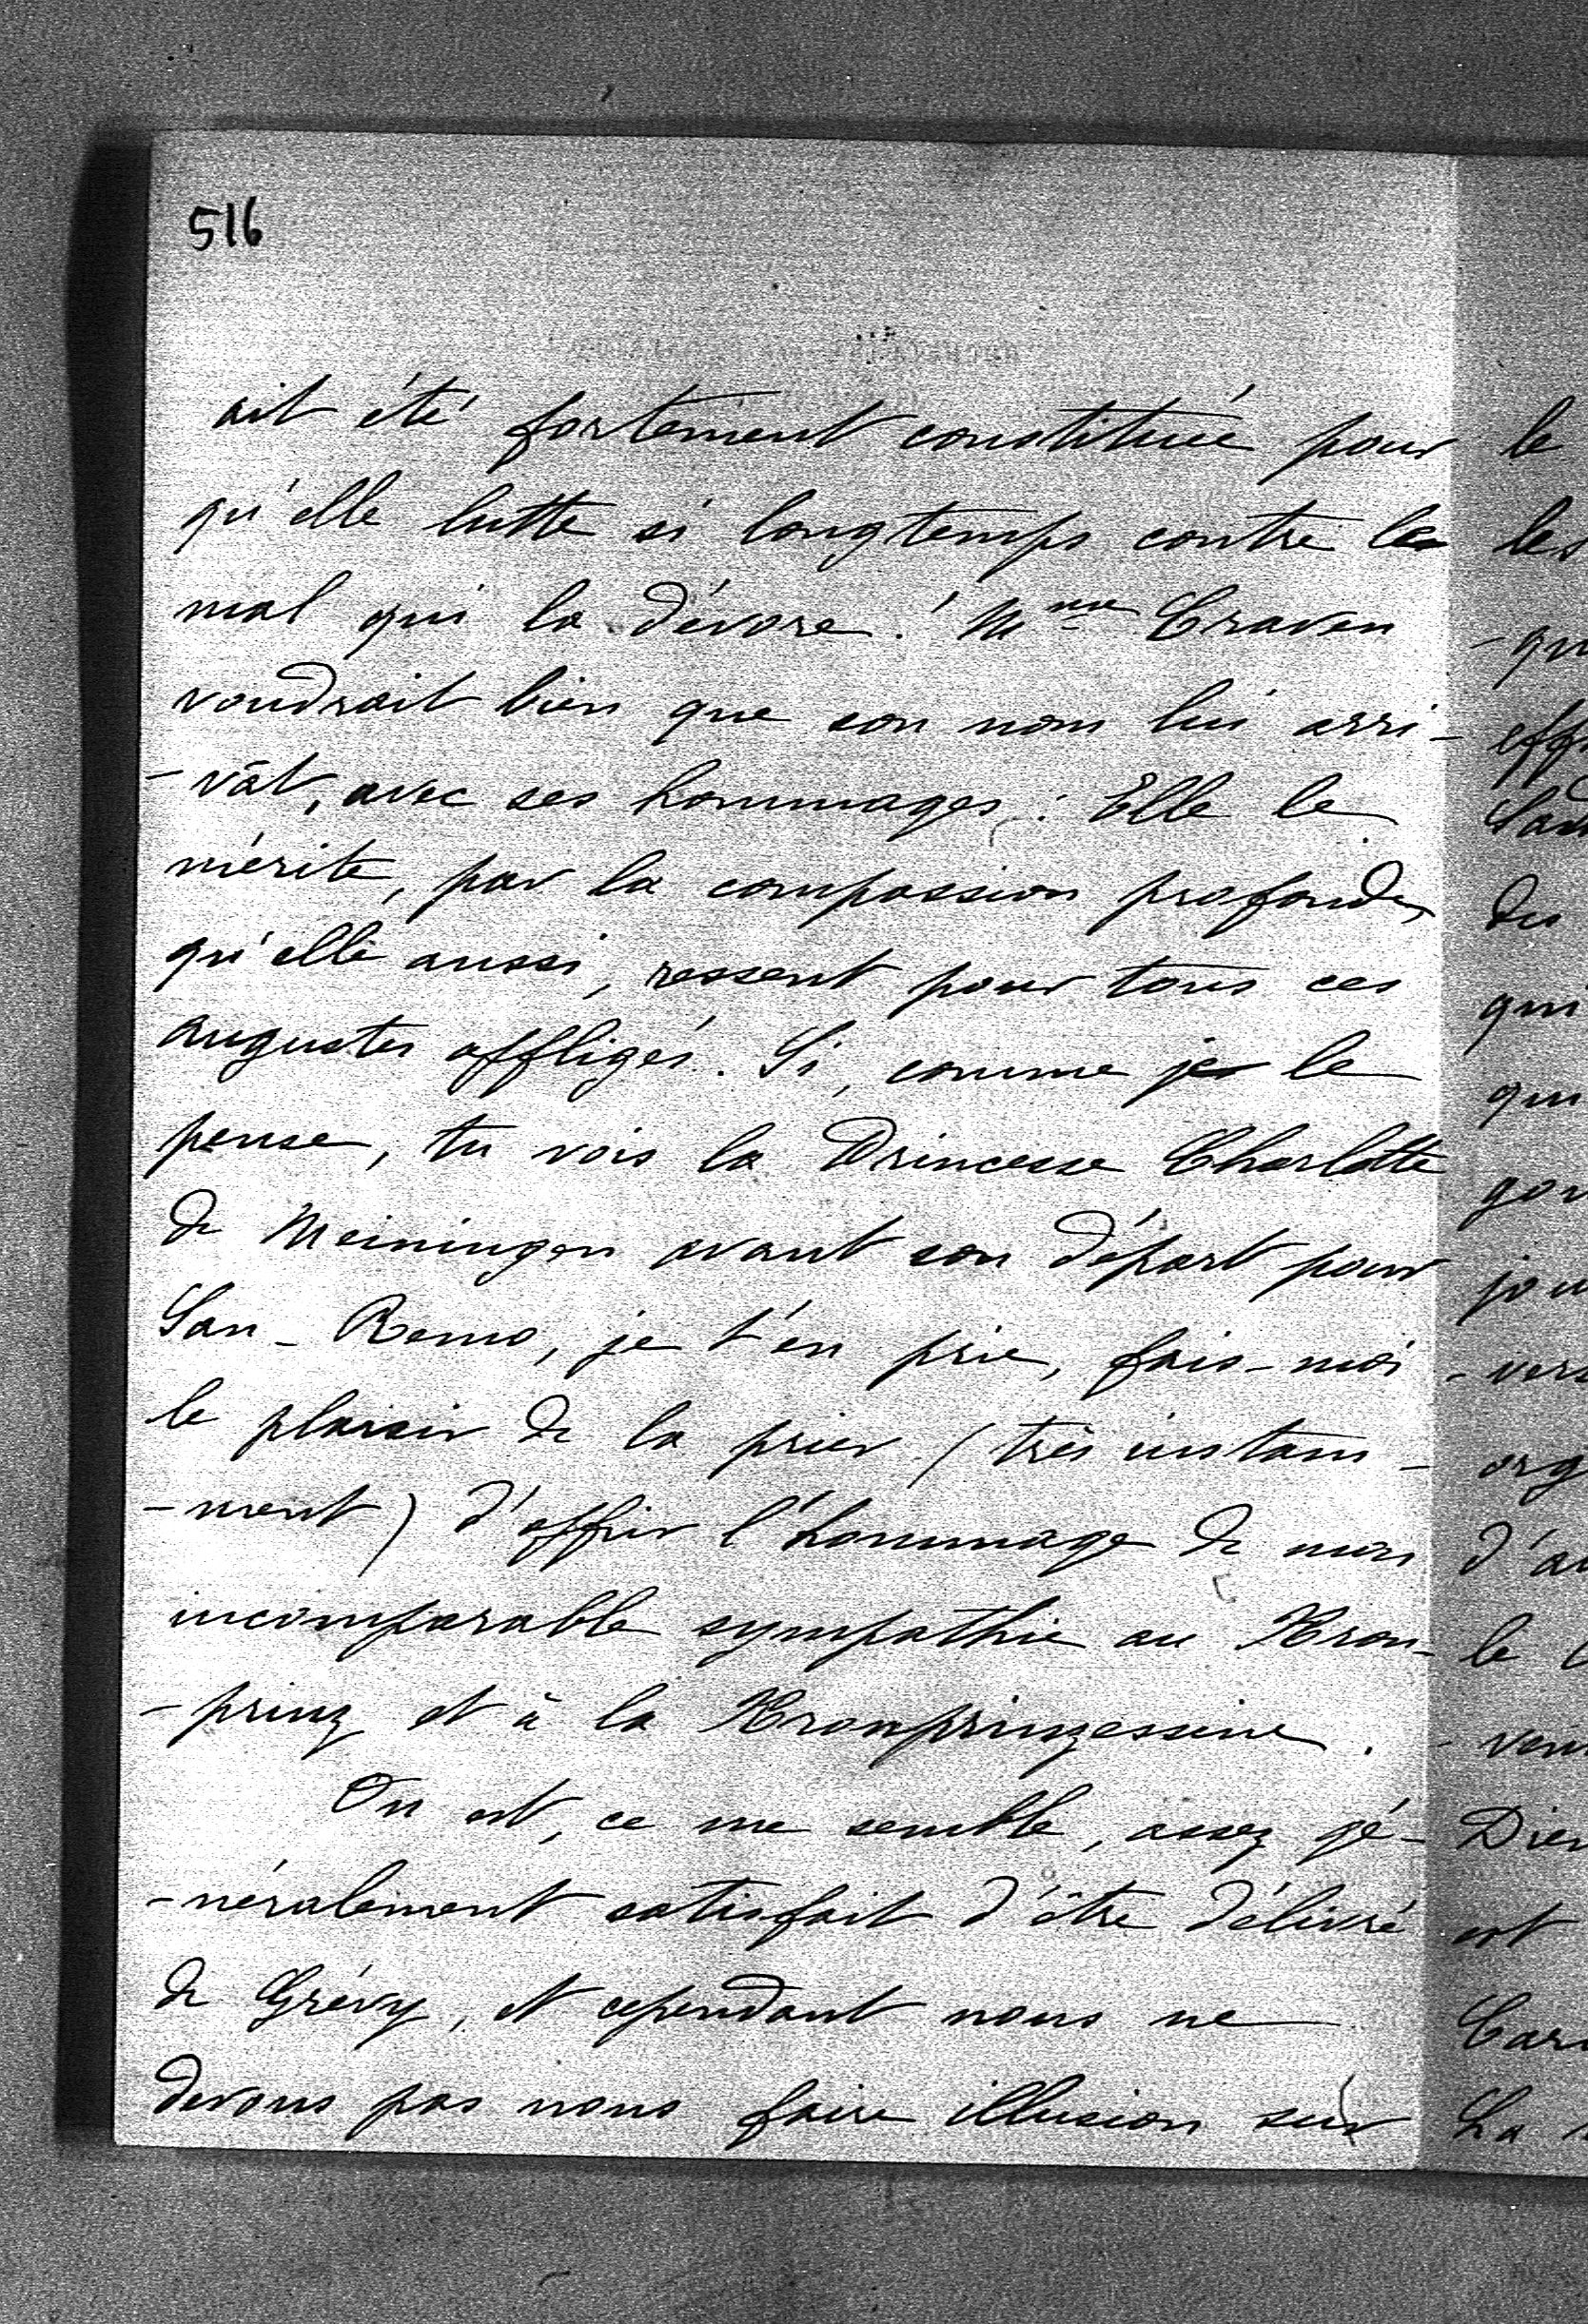 516
ait été fortement constituée pour
qu'elle lutte si longtemps contre le
mal qui la dévore ! Mme Craven
voudrait bien que son nom lui arri-
-vât, avec ses hommages : Elle le
mérite, par la compassion profonde,
qu'elle aussi, ressent pour tous ces
augustes affligés. Si, comme je le
pense, tu vois la Princesse Charlotte
de Meiningen avant son départ pour
San-Remo, je t'en prie, fais-moi
le plaisir de la prier (très instam-
-ment) d'offrir l'hommage de mon
incomparable sympathie au Kron-
-prinz et à la Kronprinzessine.
On est, ce me semble, assez gé-
-néralement satisfait d'être délivré
de Grévy, et cependant nous ne
devons pas nous faire illusion sur
le
les
-qu
effr
des
qui
qui
jou
-vers
org
d'au
le
-ven
Dieu
est
Car
La